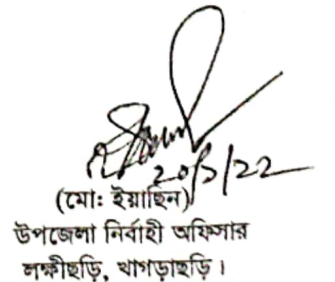 ২০/১/২২
(মোঃ ইয়াছিন)
উপজেলা নির্বাহী অফিসার
লক্ষীছড়ি, খাগড়াছড়ি।